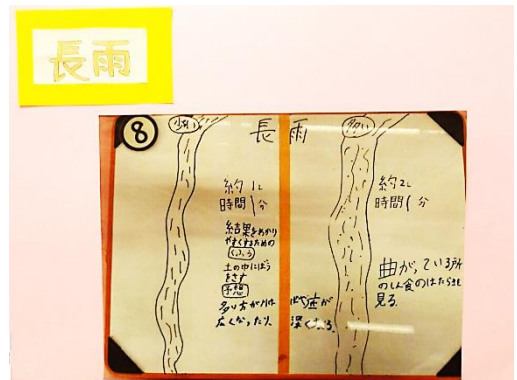 長雨
⑧
長雨
少ない
約1L
時間1分
結果をわかり
やすくするための
くふう
土の中にぼう
をさす
予想
多い方が川は
広くなったり、
深くなる。
多い
約2L
時間1分
曲がっている所
のしん食のはたらきを
見る。